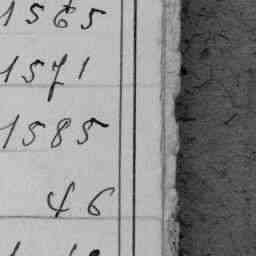 1565
1571
1585
46